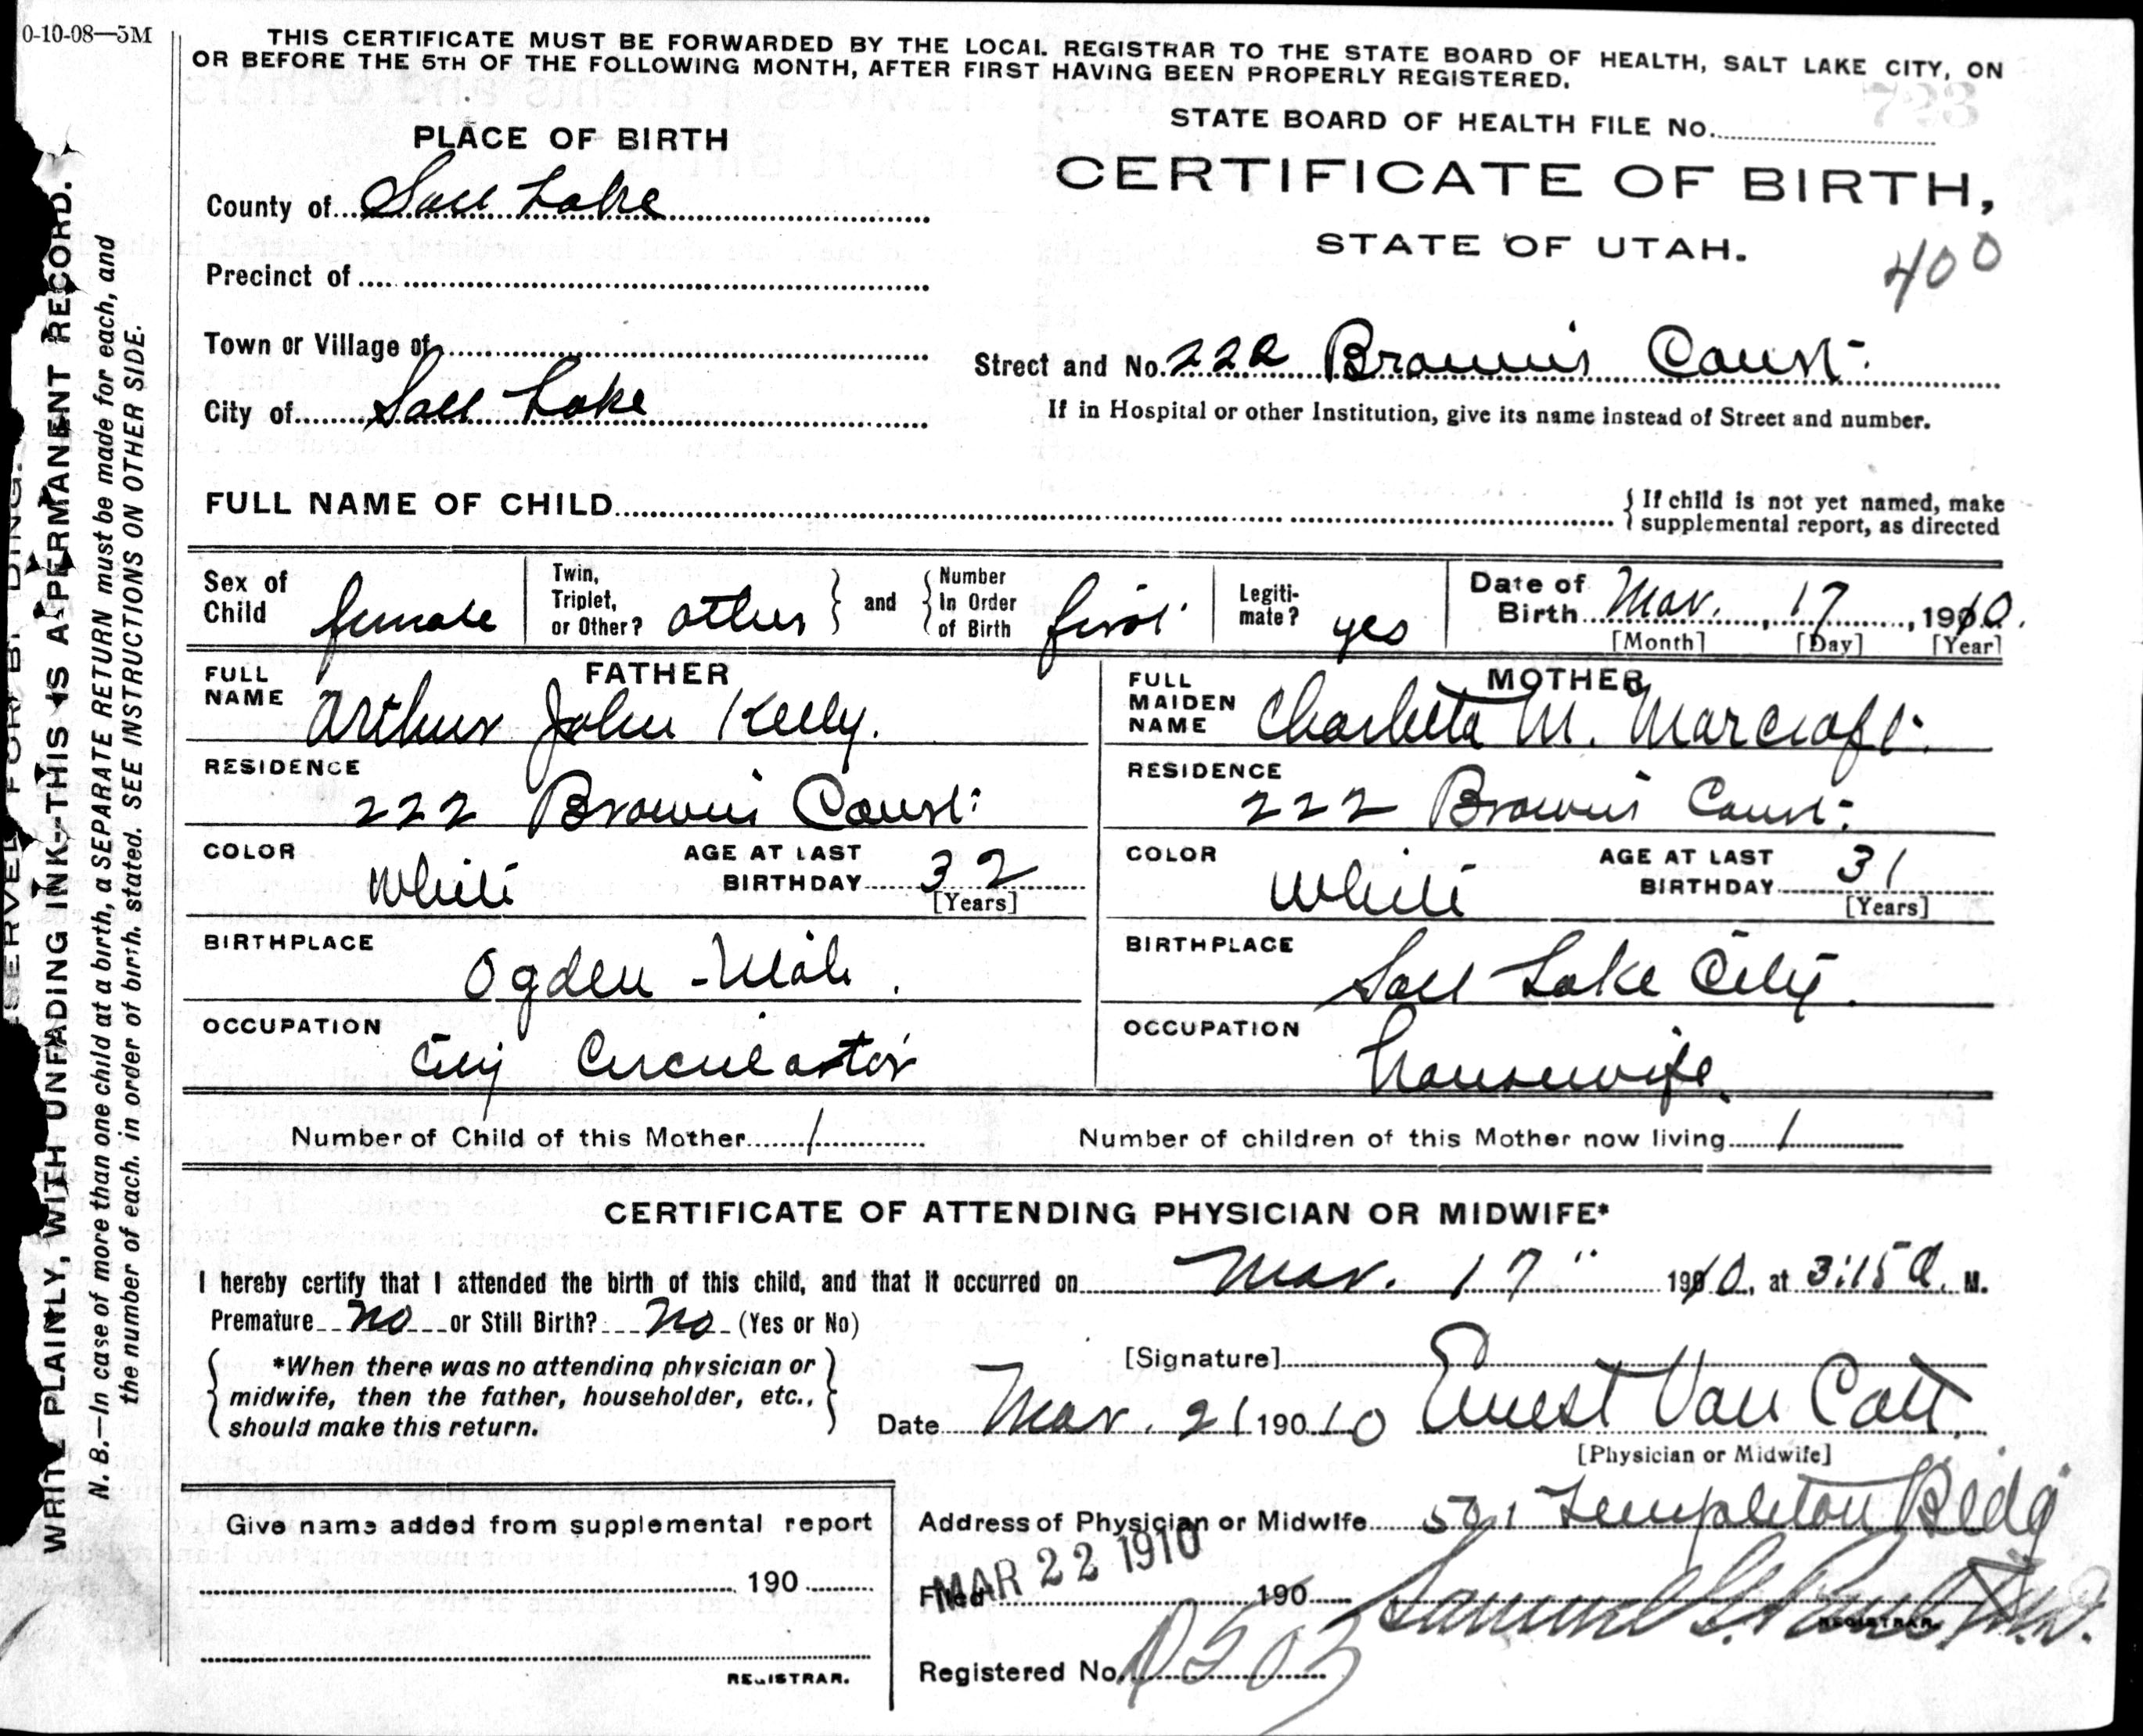 0-10-08—5M
THIS CERTIFICATE MUST BE FORWARDED BY THE LOCAL REGISTRAR TO THE STATE BOARD OF HEALTH, SALT LAKE CITY, ON
OR BEFORE THE 5TH OF THE FOLLOWING MONTH, AFTER FIRST HAVING BEEN PROPERLY REGISTERED.
STATE BOARD OF HEALTH FILE No.
723
PLACE OF BIRTH
CERTIFICATE OF BIRTH,
STATE OF UTAH.
400
County of Salt Lake
Precinct of
Town or Village of
Street and No. 222 Browns Court
City of Salt Lake
If in Hospital or other Institution, give its name instead of Street and number.
FULL NAME OF CHILD
{ If child is not yet named, make
supplemental report, as directed
Sex of Child female
Twin, Triplet, or Other? other } and { Number In Order of Birth first
Legiti-mate? yes
Date of Birth Mar. 17, 1910.
[Month] [Day] [Year]
FATHER
FULL NAME Arthur John Kelly.
RESIDENCE
222 Browns Court
COLOR White
AGE AT LAST BIRTHDAY 32
[Years]
BIRTHPLACE
Ogden - Utah.
OCCUPATION
City Circulator
MOTHER
FULL MAIDEN NAME Charlotta M. Marcroft
RESIDENCE
222 Browns Court
COLOR White
AGE AT LAST BIRTHDAY 31
[Years]
BIRTHPLACE
Salt Lake City.
OCCUPATION
housewife
Number of Child of this Mother 1
Number of children of this Mother now living 1
CERTIFICATE OF ATTENDING PHYSICIAN OR MIDWIFE*
I hereby certify that I attended the birth of this child, and that it occurred on Mar. 17" 1910, at 3:15 a. M.
Premature no or Still Birth? no (Yes or No)
{ *When there was no attending physician or }
midwife, then the father, householder, etc.,
should make this return.
[Signature] Ernest Van Cott
Date Mar. 21 190 10
[Physician or Midwife]
Address of Physician or Midwife 501 Templeton Bldg
Give name added from supplemental report
190
REGISTRAR.
Filed MAR 22 1910 190
Samuel G. Paul M.D.
REGISTRAR.
Registered No.
WRITE PLAINLY, WITH UNFADING INK—THIS IS A PERMANENT RECORD.
N. B.—In case of more than one child at a birth, a SEPARATE RETURN must be made for each, and
the number of each, in order of birth, stated. SEE INSTRUCTIONS ON OTHER SIDE.